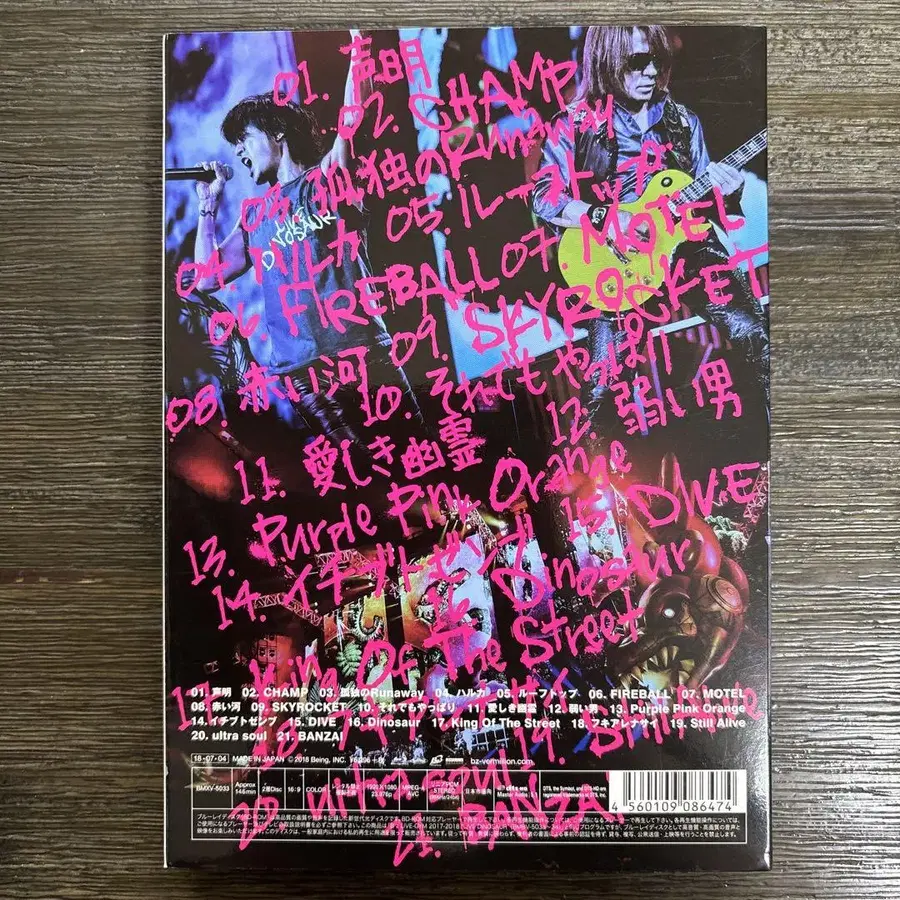 01. 声明
02. CHAMP
03. 孤独のRunaway
04. ハルカ 05. ルーフトップ
06. FIREBALL 07. MOTEL
08. 赤い河 09. SKYROCKET
10. それでもやっぱり
11. 愛しき幽霊 12. 弱い男
13. Purple Pink Orange
14. イチブトゼンブ 15. DIVE
16. Dinosaur
17. King Of The Street
19. Still Alive
20. ultra soul
21. BANZAI
LIVE
DINOSAUR
01. 声明 02. CHAMP 03. 孤独のRunaway 04. ハルカ 05. ルーフトップ 06. FIREBALL 07. MOTEL
08. 赤い河 09. SKYROCKET 10. それでもやっぱり 11. 愛しき幽霊 12. 弱い男 13. Purple Pink Orange
14. イチブトゼンブ 15. DIVE 16. Dinosaur 17. King Of The Street 18. フキアレナサイ 19. Still Alive
20. ultra soul 21. BANZAI
18・07・04 MADE IN JAPAN ©2018 Being, INC. bz-vermillion.com
BMXV-5033 Approx 146min 2層Disc 16:9 COLOR MPEG-4 AVC 日本市場向
4 560109 086474